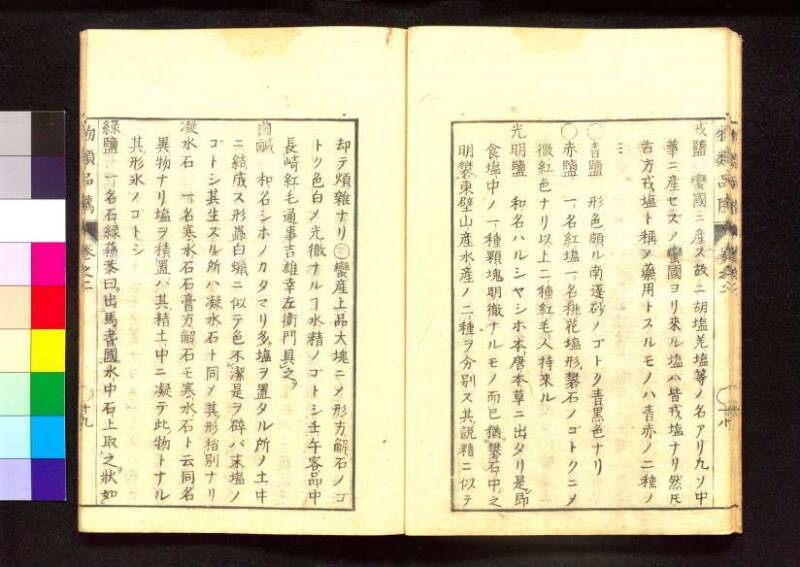 戎鹽 蠻國ニ産ス故ニ胡塩羌塩等ノ名アリ凡ソ中
華ニ産セスノ蠻國ヨリ來ル塩ハ皆戎塩ナリ然氏
古方戎塩ト稱ノ藥用トスルモノハ青赤ノ二種ノ
ミ
○青鹽 形色頗ル南蓬砂ノゴトク青黒色ナリ
○赤鹽 一名紅塩一名桃花塩形礬石ノゴトクニメ
微紅色ナリ以上二種紅毛人持来ル
光明鹽 和名ハルシヤシホ本唐本草ニ出タリ是即
食塩中ノ一種顆塊明徹ナルモノ而已猶礬石中之
明礬東壁山産水産ノ二種ヲ分別ス其説精ニ似テ
却テ煩雜ナリ 蠻産上品大塊ニメ形方解石ノゴ
トク色白メ光徹ナルヿ水精ノゴトシ壬午客品中
長崎紅毛通事吉雄幸左衛門具之
鹵鹹 和名シホノカタマリ多塩ヲ置タル所ノ土中
ニ結成ス形蟲白蝋ニ似テ色不潔是ヲ碎バ末塩ノ
ゴトシ其生ズル所ハ凝水石ト同メ其形格別ナリ
凝水石 一名寒水石石膏方解石モ寒水石ト云同名
異物ナリ塩ヲ積置バ其精土中ニ凝テ此物トナル
其形氷ノゴトシ
緑鹽 一名石緑藴蒸曰出焉耆國水中石上取之状如
物類品隲 巻之二 十九